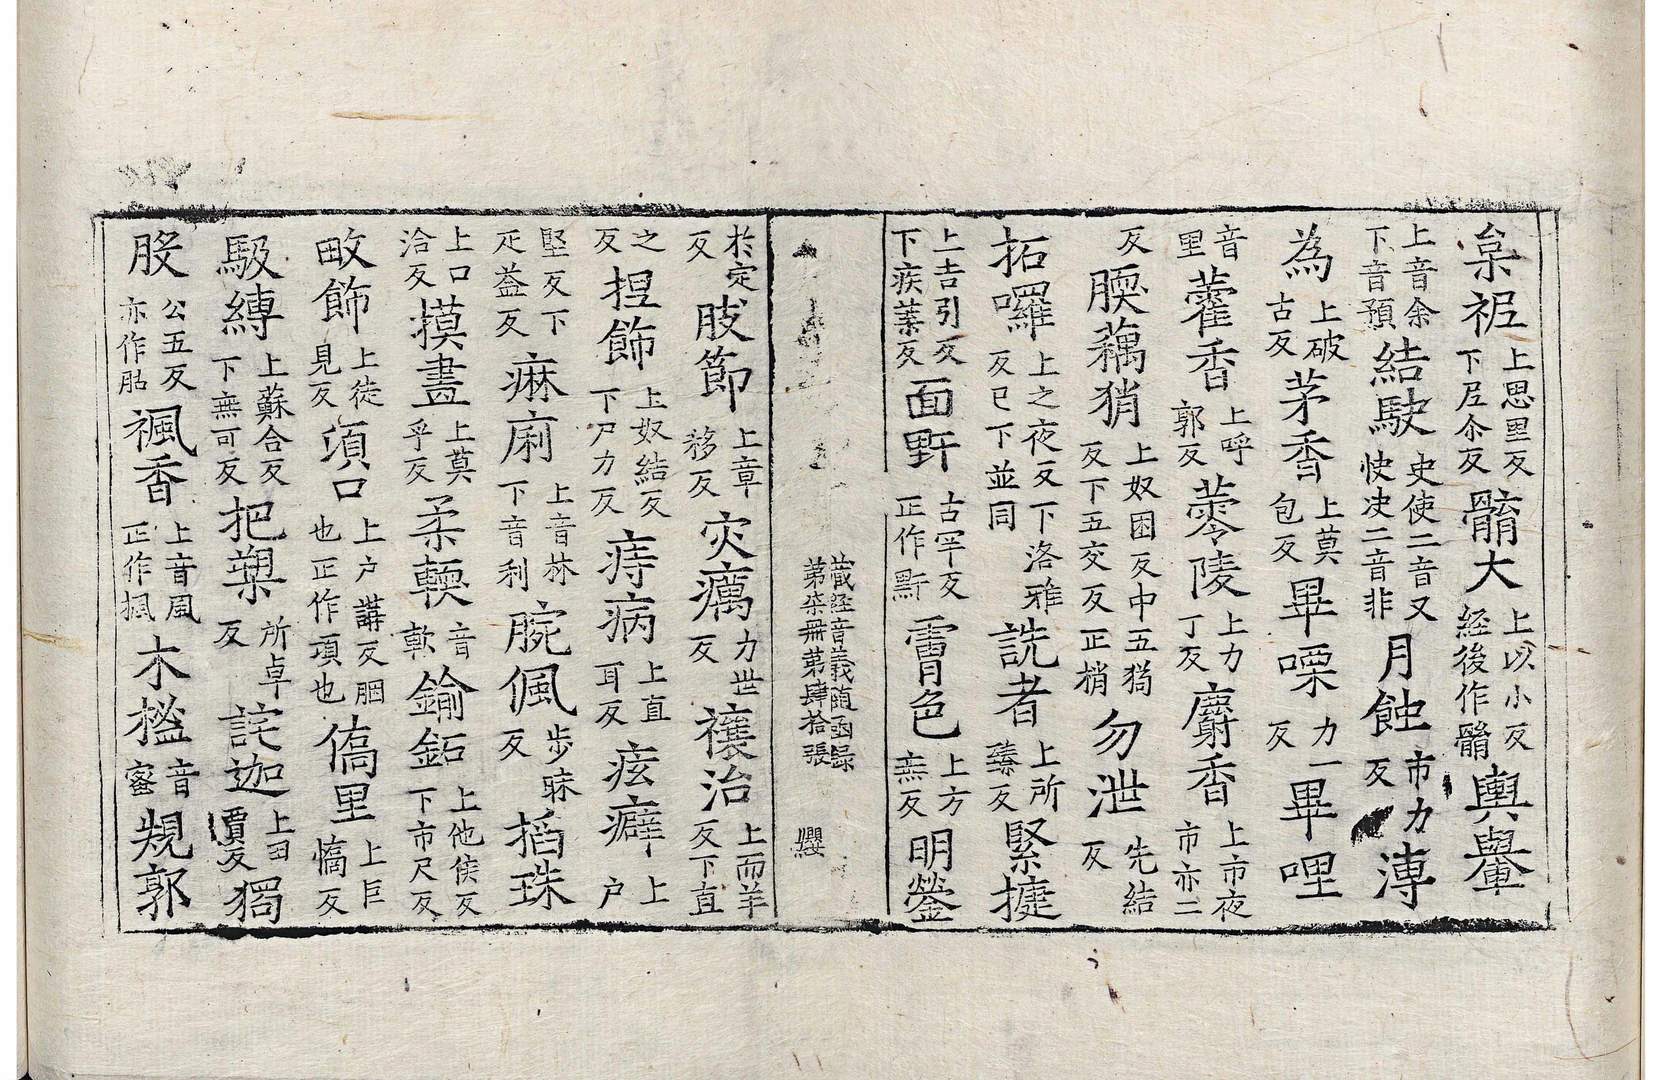 枲祀上思里反下尼尒反髇大上以小反経後作髇輿轝
上音余下音預結駛史使二音又快决二音非月蝕市力反溥
為上破古反茅香上莫包反畢㗚力一反畢哩
音里藿香上呼郭反蓤陵上力丁反麝香上市夜市亦二
反腝藕矟上奴困反中五狗反下五交反正梢勿泄先結反
拓囉上之夜反下洛雅反巳下並同詵者上所臻反緊㨗
上吉引反下疾葉反面䵟古罕反正作䵟霌色上方無反明鎣
藏経音義随函録第柒冊第肆拾張 纓
扵定反肢節上章移反灾癘力世反禳治上而羊反下直
之反揑飾上奴結反下尸力反痔病上直耳反痃癖上户
堅反下疋益反痳㾐上音林下音利腕佩步昧反搯珠
上口洽反摸畫上莫乎反柔輭音軟鍮鉐上他侯反下市尺反
畋飾上徒見反項口上户講反胭也正作項也僑里上巨憍反
馺縛上蘇合反下無可反把槊所卓反詫迦上丑賈反獨
股公五反亦作𦙶楓香上音風正作楓木榓音蜜規郭